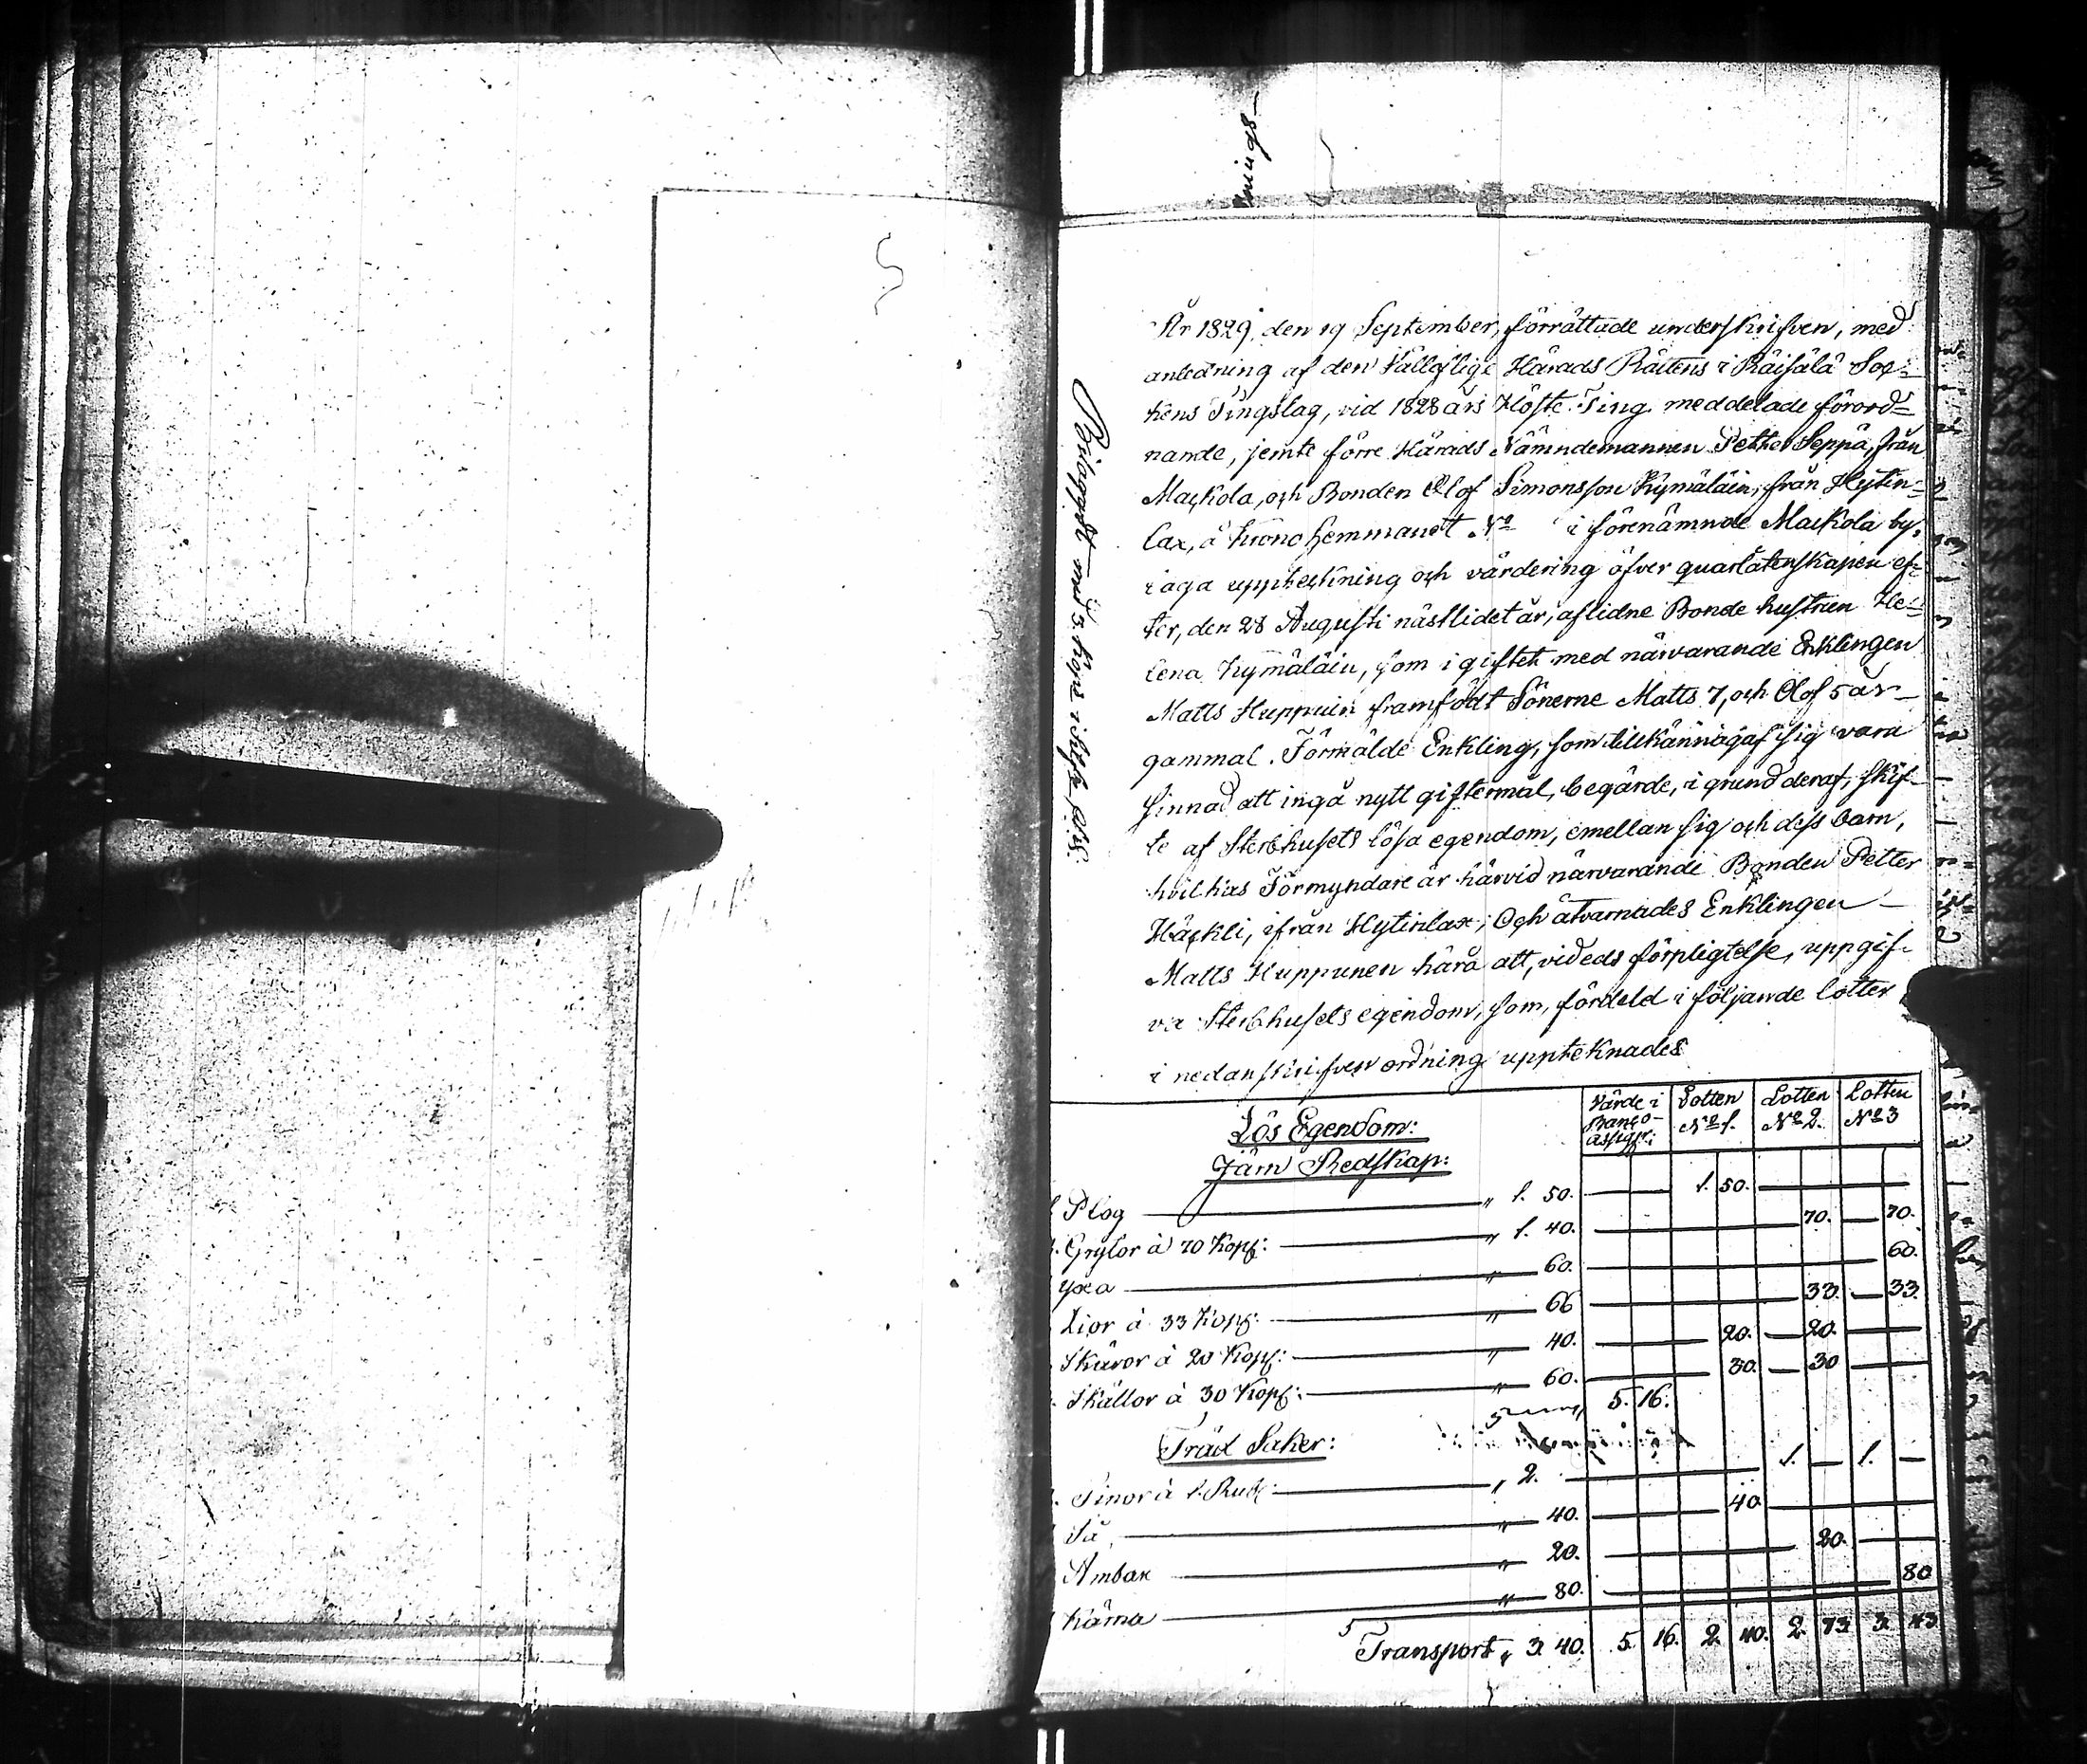 nings-
År 1829, den 19 September, förrättade underskrifven, med
anledning af den Vällofliga Härads Rättens i Räisälä Soc-
kens Tingslag, vid 1828 års Höste Ting meddelade förord-
nande, jemte förre Härads Nämndemannen Petter Seppä, från
Mackola, och Bonden Olof Simonsson Kymäläin, från Hytin-
lax, å krono hemmanet No i förenämnde Mackola by,
laga uppteckning och värdering öfver quarlåtenskapen ef-
ter, den 28 Augusti nästlidet år, aflidne Bonde hustrun He-
lena Kymäläin, som i giftet med närvarande Enklingen
Matts Huppuin framfödt Sönerne Matts 7, och Olof 5 år
gammal. Förmälde Enkling, som tillkännagaf sig vara
sinnad att ingå nytt giftermål, begärde, i grund deraf, skif-
te af Sterbhusets lösa egendom, emellan sig och dess barn,
hvilkas Förmyndare är härvid närvarande Bonden Petter
Häckli, ifrån Hytinlax; Och åtvarnades Enklingen
Matts Huppunen håra att, vid eds förpligtelse, uppgif-
va Sterbhusets egendom, som, fördeld i följande lotter
i nedanskrifven ordning upptecknades
Belagdt med 3 kops
Lös Egendom: Värde i Banco Assign: Lotten No 1. Lotten No 2. Lotten No 3
Järn Redskap:
Plog " 1. 50. 1. 50.
Grytor à 70 Kop: " 1. 40. 70. 70.
Yxa " 60. 60.
Liar à 33 Kop: " 66 33. 33.
Skäror à 20 Kop: " 40. 20. 20.
Skällor à 30 Kop: " 60. 30. 30
5. 16.
Träd Saker:
Tinor à 1. Rub: " 2. 1. — 1. —
Så " 40. 40
Ämbar " 20. 20.
Kärna " 80. 80
Transport " 3. 40. 5. 16. 2. 40. 2. 73. 3. 43